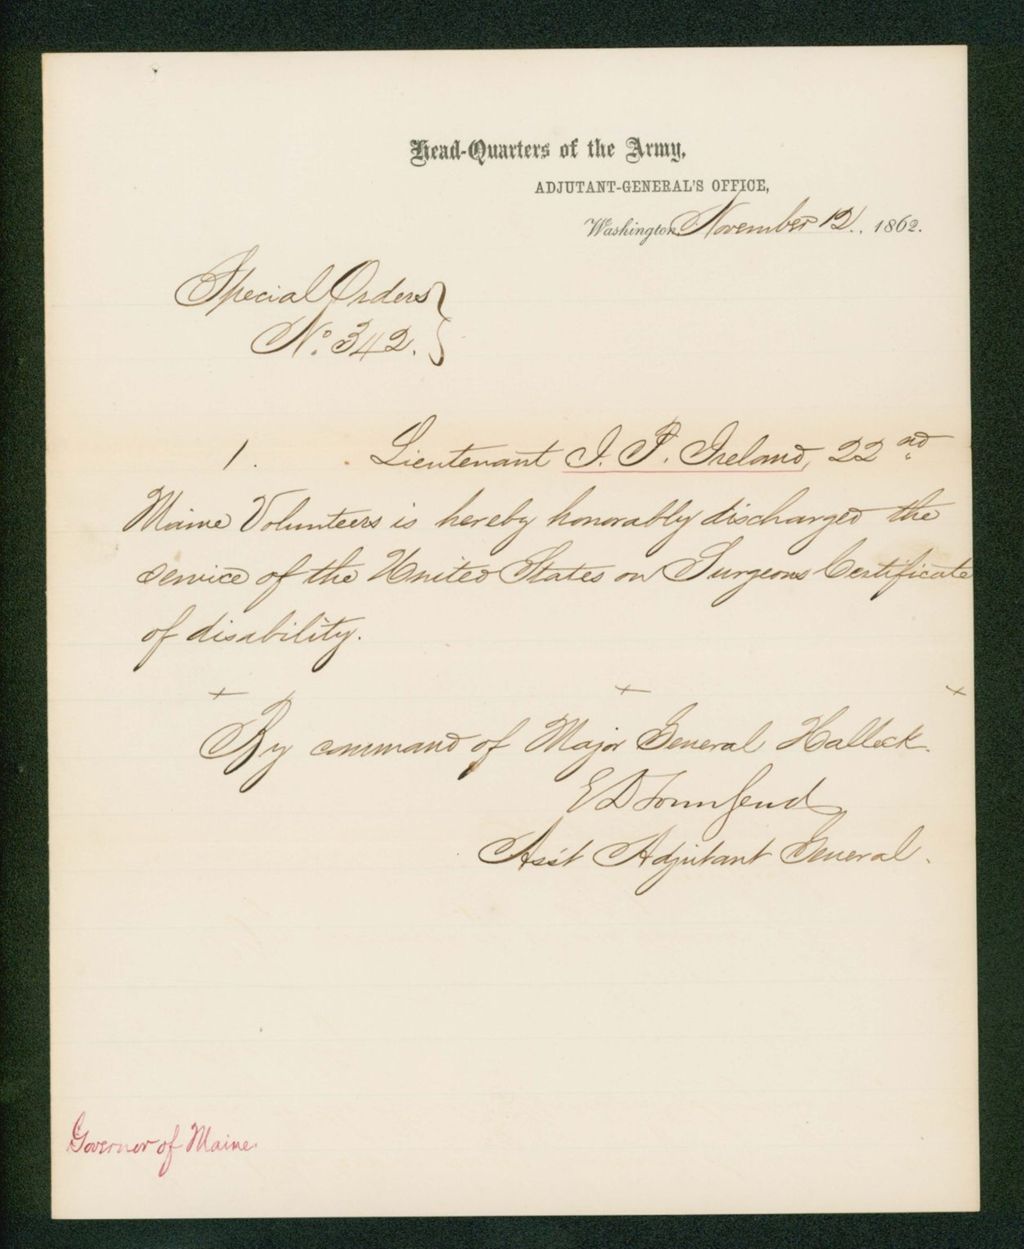 Head-Quarters of the Army,
ADJUTANT-GENERAL'S OFFICE,
Washington, November 12, 1862.
Special Orders }
No. 342. }
1. Lieutenant I. P. Ireland, 22nd
Maine Volunteers is hereby honorably discharged the
service of the United States on Surgeons Certificate
of disability.
+ + +
By command of Major General Halleck.
E D Townsend
Ass't Adjutant General.
Governor of Maine